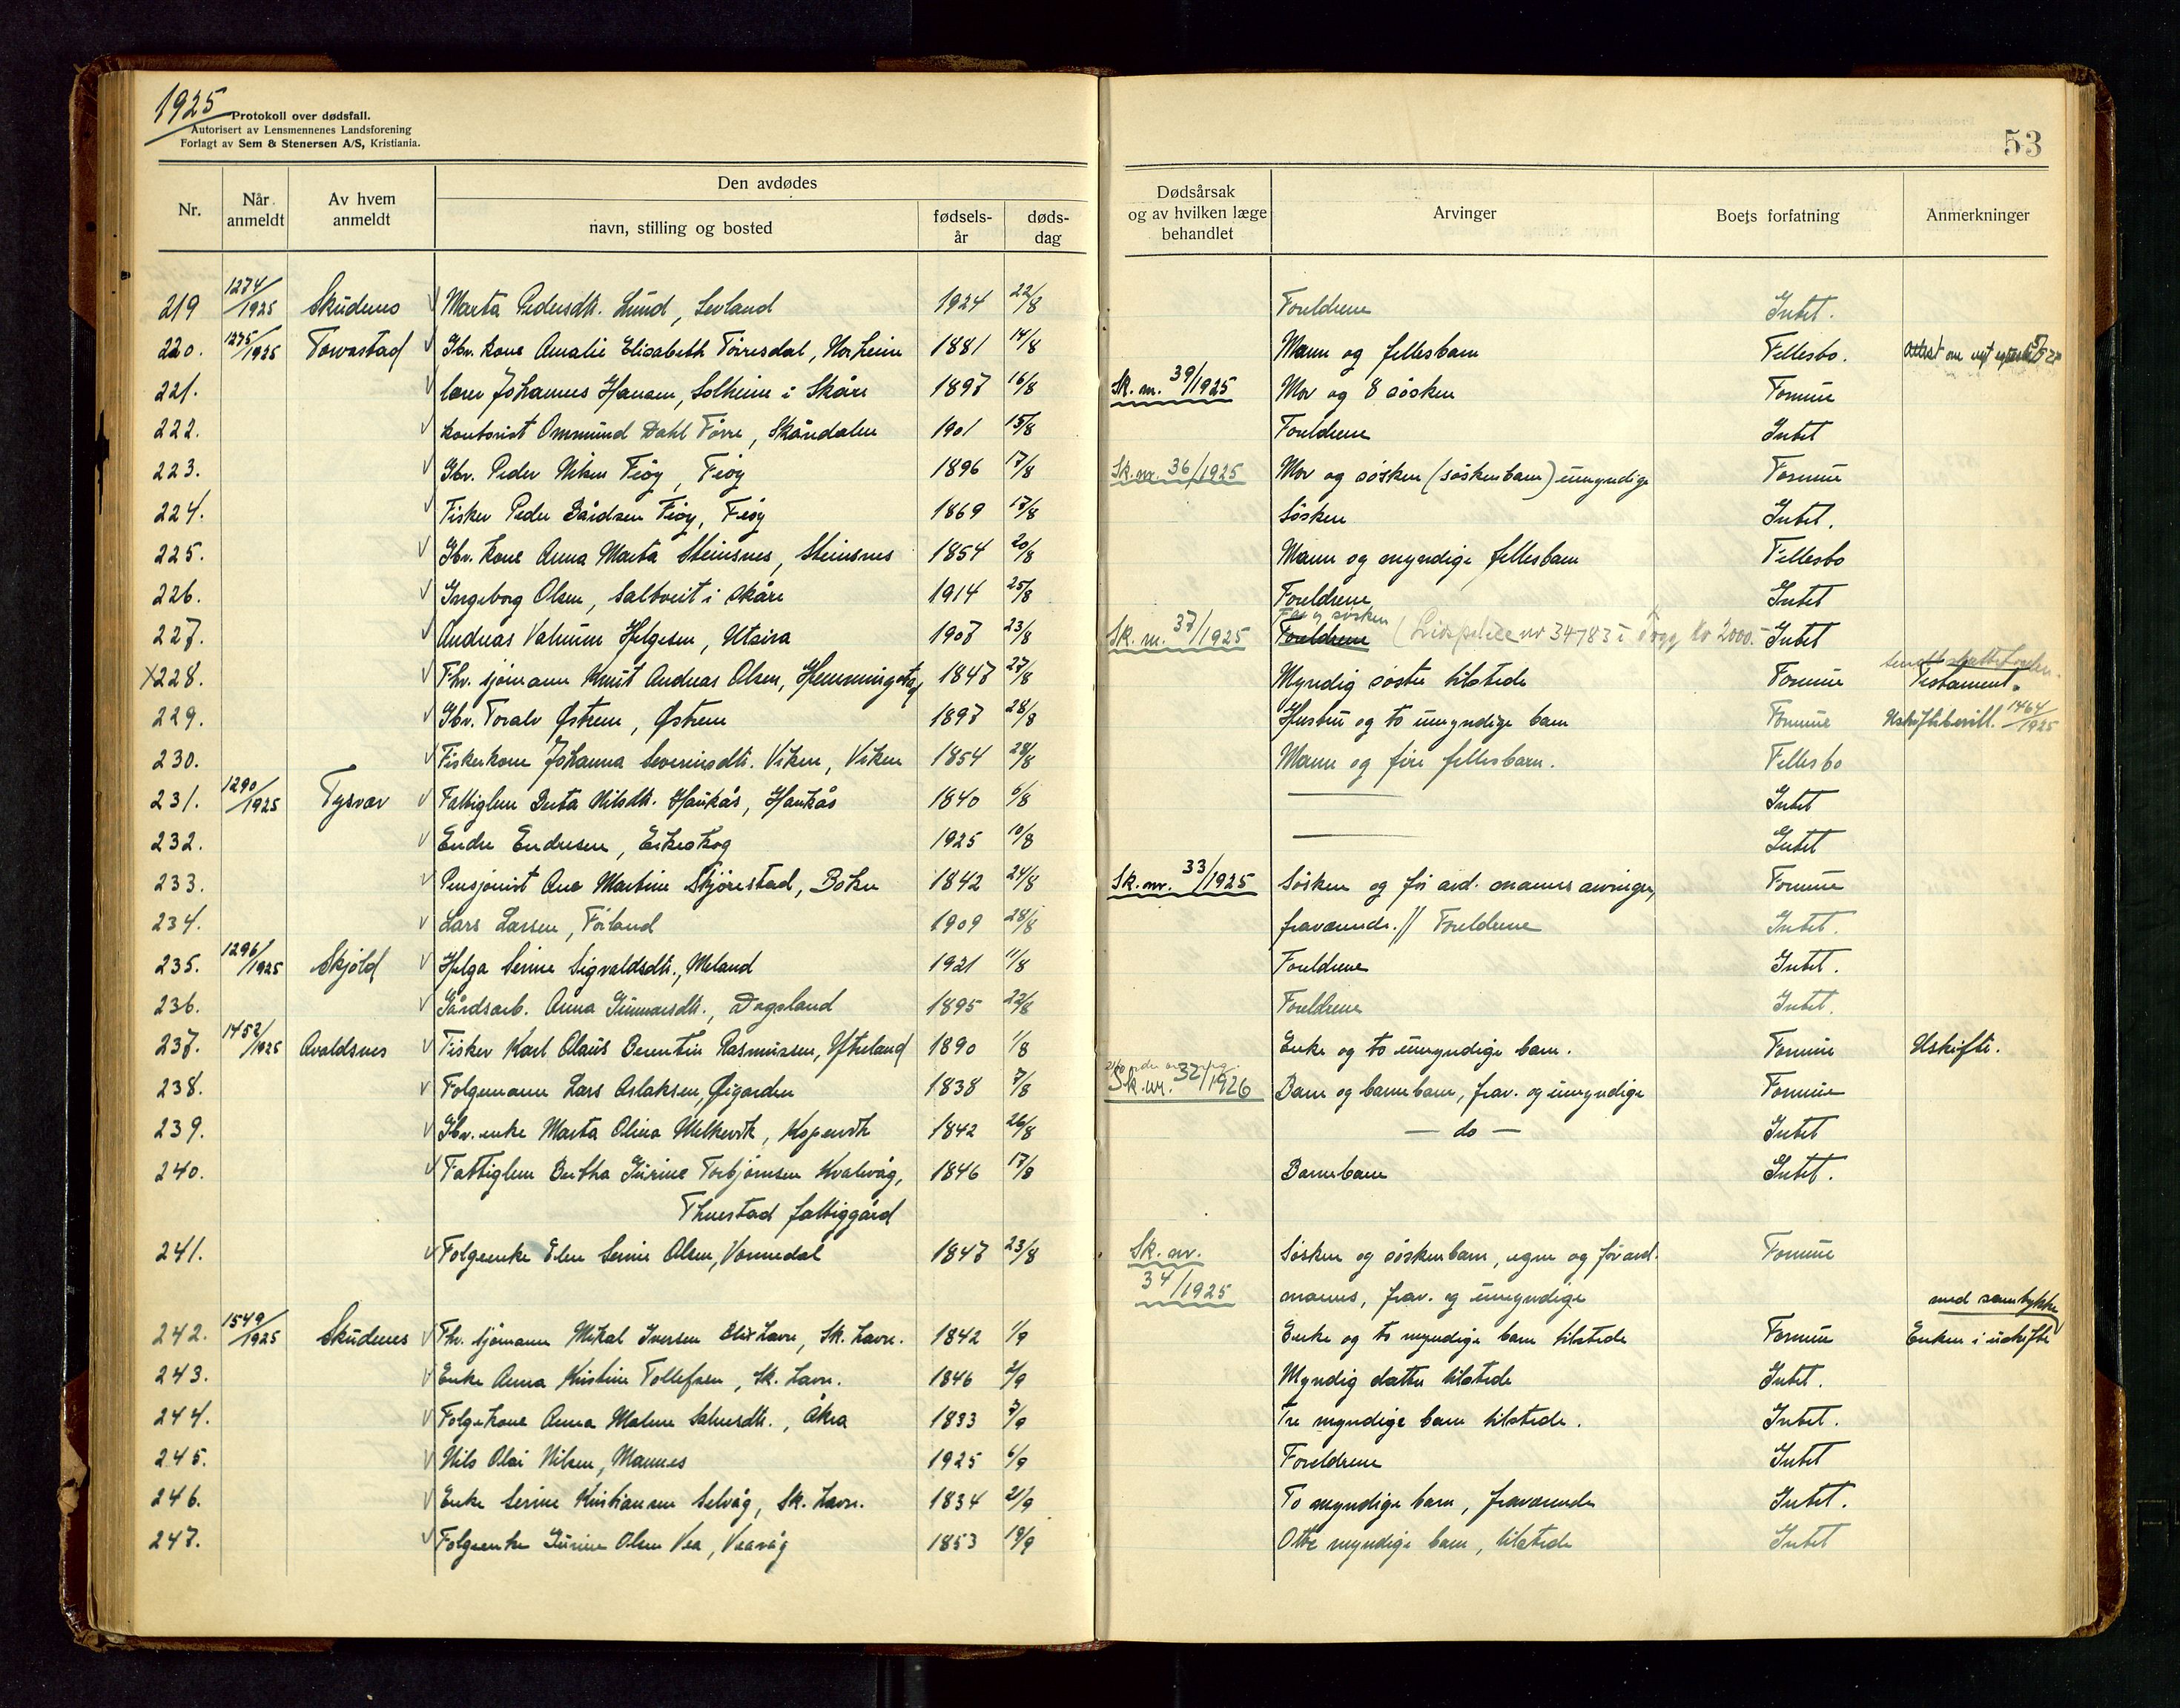 1925
Protokoll over dødsfall.
Autorisert av Lensmennenes Landsforening
Forlagt av Sem & Stenersen A/S, Kristiania.
53
Nr. Når anmeldt Av hvem anmeldt Den avdødes navn, stilling og bosted fødselsår dødsdag Dødsårsak og av hvilken læge behandlet Arvinger Boets forfatning Anmerkninger
219 1274/1925 Skudenes Marta Pedersdtr. Lund, Sevland 1924 22/8 Foreldrene Intet.
220. 1275/1925 Torvastad Gbr. kone Amalie Elisabeth Tórresdal, Norheim 1881 14/8 Mann og fellesbarn Fellesbo. Attest om
221. lærer Johannes Hansen, Solheim i Skåre 1897 16/8 Sk. nr. 39/1925 Mor og 8 sósken Formue
222. kontorist Ommund Dahl Tórre, Skåredalen 1901 15/8 Foreldrene Intet
223. Gbr. Peder Nilsen Feóy, Feóy 1896 17/8 Sk. nr. 36/1925 Mor og sósken (sóskenbarn) umyndige Formue
224. Fisker Peder Bårdsen Feóy, Feóy 1869 17/8 Sósken Intet.
225. Gbr. kone Anna Marta Steinsnes, Steinsnes 1854 20/8 Mann og myndige fellesbarn Fellesbo
226. Ingeborg Olsen, Saltveit i Skåre 1914 25/8 Foreldrene Intet
227. Andreas Valnum Helgesen, Utsira 1907 23/8 Sk. nr. 37/1925 Foreldrene Far og sósken (Livspolise nr 34783 i Kr 2000.- Intet
X228. Fhv. sjómann Knut Andreas Olsen, Hemmingstad 1847 27/8 Myndig sóster tilstede Formue Testament.
229. Gbr. Toralv Østrem, Østrem 1897 28/8 Hustru og to umyndige barn Formue Uskiftebevill. 1464/1925
230. Fiskerkone Johanna Severinsdtr. Viken, Viken 1854 28/8 Mann og fire fellesbarn. Fellesbo
231. 1290/1925 Tysvær Fattiglem Berta Nilsdtr. Haukås, Haukås 1840 6/8 — Intet
232. Endre Endresen, Eikeskog 1925 10/8 — Intet
233. Pensjonist Ane Martine Skjórestad, Bokn 1842 24/8 Sk. nr. 33/1925 Sósken og fór avd. manns arvinger, Formue
234. Lars Larsen, Fórland 1909 28/8 fraværende. // Foreldrene Intet.
235. 1296/1925 Skjóld Helga Serine Sigvaldsdtr., Meland 1921 11/8 Foreldrene Intet.
236. Gårdsarb. Anna Gunnarsdtr., Dagsland 1895 22/8 Foreldrene Intet.
237. 1452/1925 Avaldsnes Fisker Karl Olaus Berentin Rasmussen, Ytreland 1890 1/8 Enke og to umyndige barn. Formue Uskifte.
238. Folgemann Lars Aslaksen, Øigarden 1838 7/8 Sk. nr. 32/1926 Barn og barnebarn, frav. og umyndige Formue
239. Gbr. enke Marta Olina Melkevik, Kopervik 1842 26/8 — do — Intet
240. Fattiglem Bertha Gurine Torbjórnsen Kvalevåg, 1846 17/8 Barnebarn Intet.
Thuestad fattiggård
241. Folgeenke Elen Serine Olsen, Vormedal 1847 23/8 Sk. nr. 34/1925 Sósken og sóskenbarn, egne og fór avd. Formue
manns, frav. og umyndige
242. 1549/1925 Skudenes Fhv. sjómann Mikal Iversen Elixhavn, Sk. havn. 1842 1/9 Enke og to myndige barn tilstede Formue Enken i uskifte med samtykke
243. Enke Anna Kristine Tollefsen, Sk. havn. 1846 2/9 Myndig datter tilstede Intet.
244. Folgekone Anna Malene Salvesdtr., Åkra 1833 7/9 Tre myndige barn tilstede. Intet.
245. Nils Olai Nilsen, Mannes 1925 6/9 Foreldrene Intet
246. Enke Serine Kristiansen Selvåg, Sk. havn. 1834 2/9 To myndige barn, fraværende Intet.
247. Folgeenke Gurine Olsen Vea, Veavåg 1853 19/9 Otte myndige barn, tilstede Intet